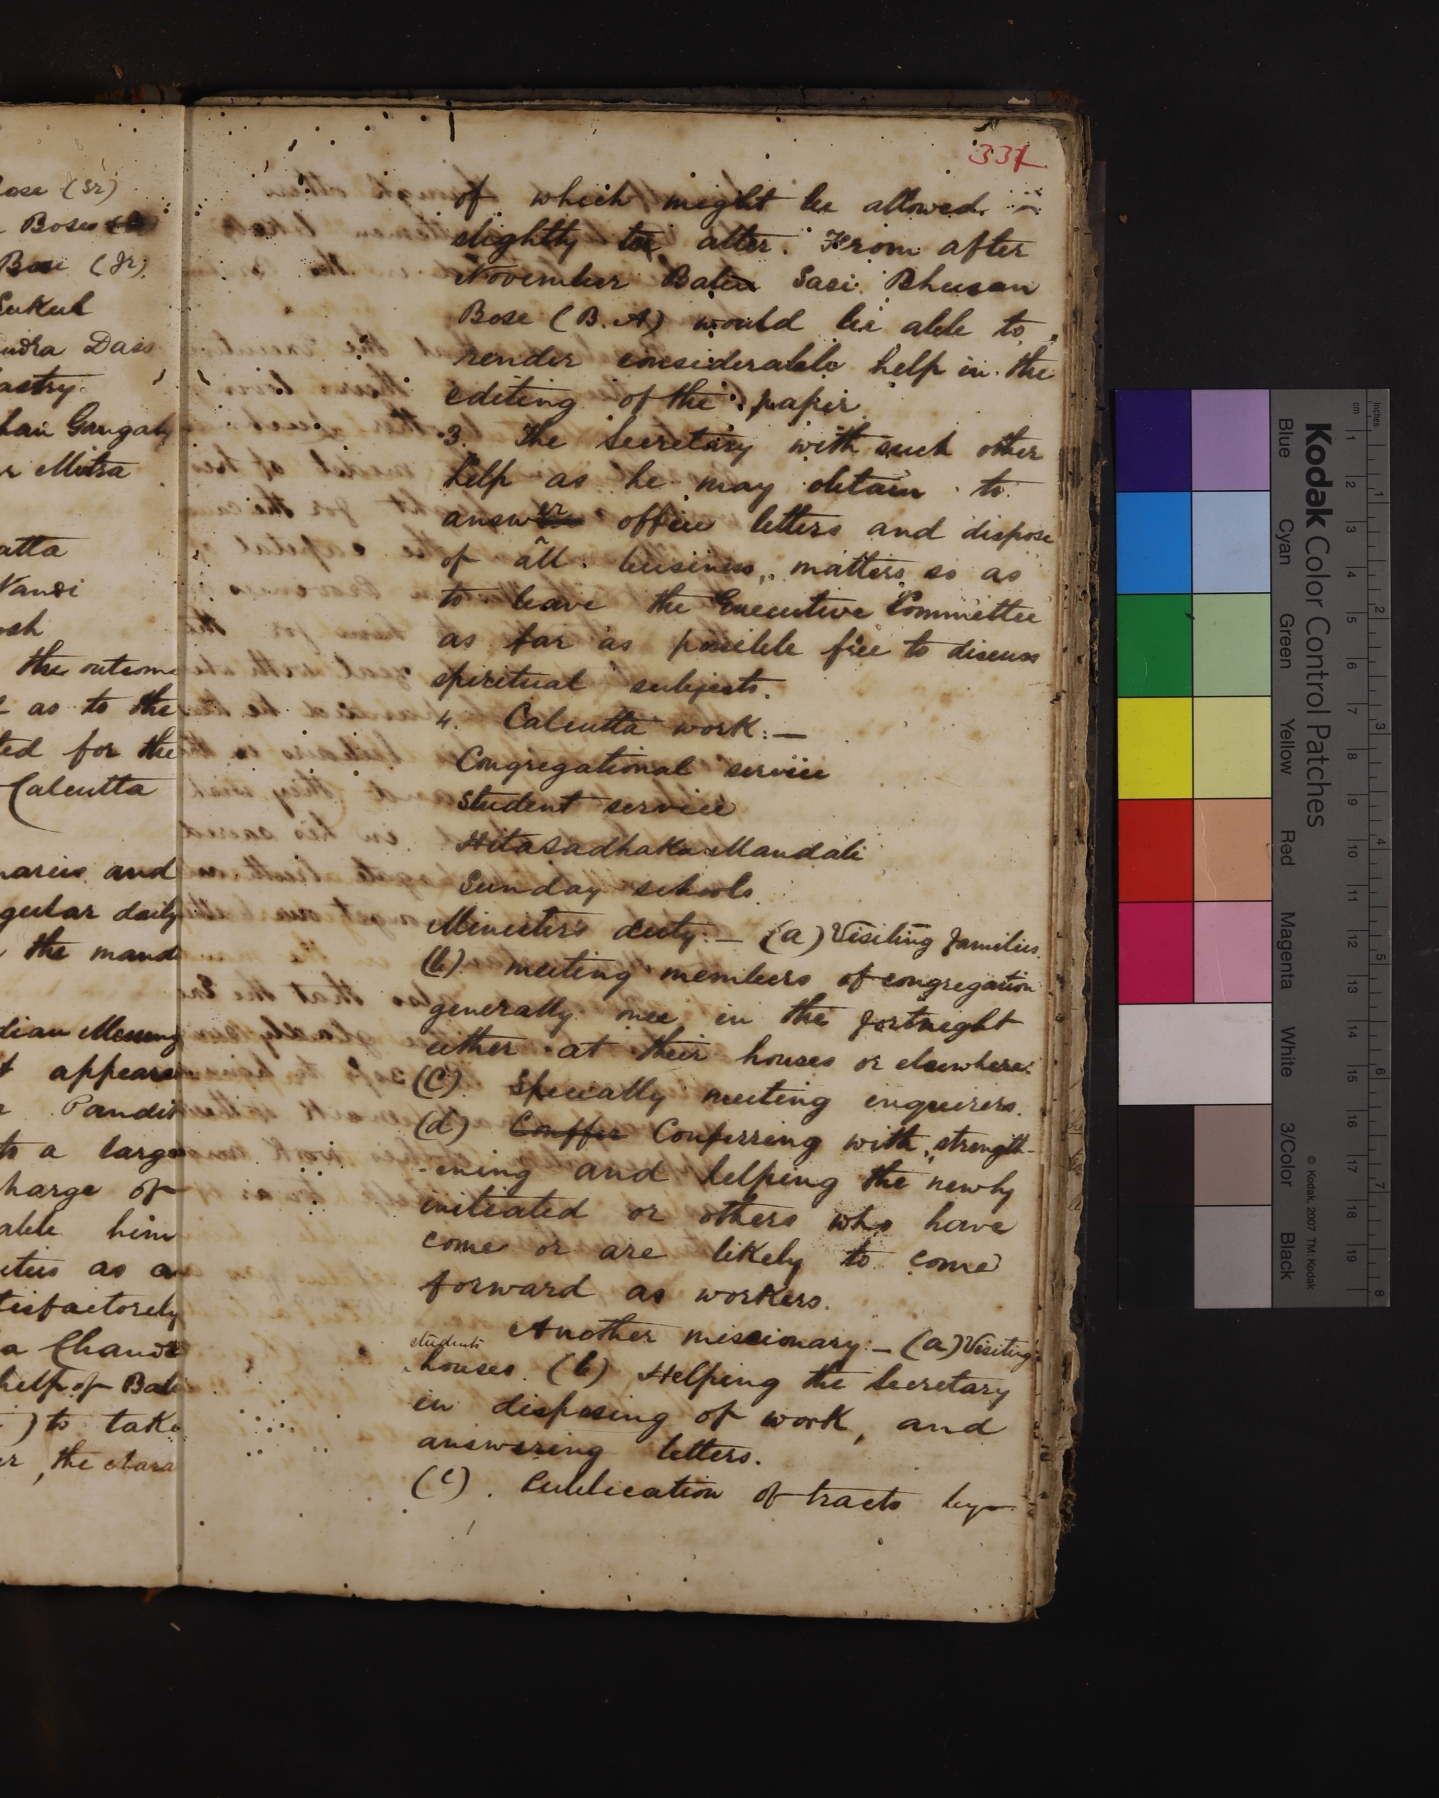 ose (Sr)
Bose
Bose (Jr).
Sukul
ndra Dass
astry.
han Gangah
r Mitra
atta
Nandi
osh
the outcome
as to the
ted for the
Calcutta
naries and
gular daily
the mand
dian Messeng
t appears
r Pandit
to a large
harge of
able him
uties as a
tisfactorely
a Chandr
help of Bab
) to take
er, the chara
337
of which might be allowed
slightly to alter. From after
November Babu Sasi Bhusan
Bose (B.A) would be able to
render considerable help in the
editing of the paper.
3. The Secretary with such other
help as he may obtain to
answer office letters and dispose
of all business, matters so as
to leave the Executive Committee
as far as possible free to discuss
spiritual subjects.
4. Calcutta work:—
Congregational service
Student service
Hitasadhaka Mandali
Sunday schools.
Minister's duty:— (a) Visiting families.
(b) meeting members of congregation
generally once in the fortnight
either at their houses or elsewhere.
(C). Specially meeting enquirers.
(d) Conffer Conferring with, strength-
-ening and helping the newly
initiated or others who have
come or are likely to come
forward as workers.
Another missionary:— (a) Visiting
students
houses. (b) Helping the Secretary
in disposing of work, and
answering letters.
(C). Publication of tracts by
Kodak Color Control Patches
Blue Cyan Green Yellow Red Magenta White 3/Color Black
© Kodak, 2007 TM: Kodak
cm 1 2 3 4 5 6 7 8 9 10 11 12 13 14 15 16 17 18 19
inches 1 2 3 4 5 6 7 8